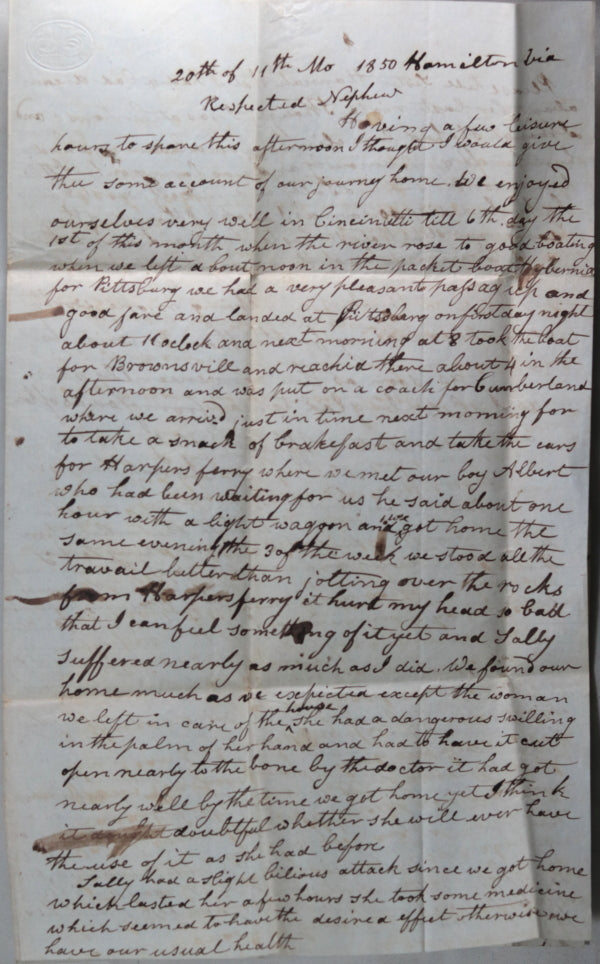 20th of 11th Mo 1850 Hamilton Via
Respected Nephew
Having a few leisure
hours to spare this afternoon I thought I would give
thee some account of our journey home. We enjoyed
ourselves very well in Cincinetti till 6th day the
1st of this month when the river rose to good boating
when we left about noon in the packet boat Hybernia
for Pittsburg we had a very pleasant passag up and
good fare and landed at Pittsburg on first day night
about 11 oclock and next morning at 8 took the boat
for Brownsvill and reachid there about 4 in the
afternoon and was put on a coach for Cumberland
where we arrived just in time next morning for
to take a snack of brakefast and take the cars
for Harpers ferry where we met our boy Albert
who had been waiting for us he said about one
hour with a light waggon and we got home the
same evening the 3 of the week we stood all the
travail better than jolting over the rocks
from Harpers ferry it hurt my head so bad
that I can feel something of it yet and Sally
suffered nearly as much as I did. We found our
home much as we expicted except the woman
we left in care of the house she had a dangerous swilling
in the palm of her hand and had to have it cut
open nearly to the bone by the doctor it had got
nearly well by the time we got home yet I think
it doubtful whether she will ever have
the use of it as she had before
Sally had a slight bilious attack since we got home
which lasted her a few hours she took some medicine
which seemed to have the desired effect otherwise we
have our usual health